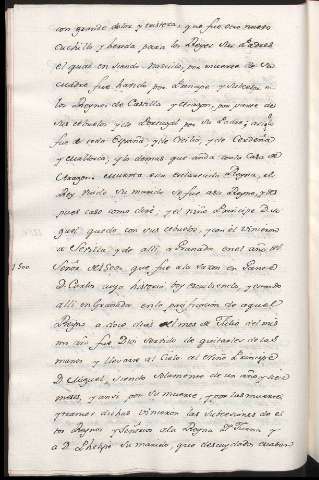 con grande dolor y tristeza, que fue otro nuevo
cuchillo y herida para los Reyes sus Padres
el qual en siendo nascido, por muerte de su
madre fue havido por Principe y subcesor en
los Reynos de Castilla y Aragon, por parte de
sus Abuelos y de Portugal por su Padre;
fue de toda España, y de Cicilia, y de Cerdeña
y Mallorca, y lo demas que anda con la Casa de
Aragon. muerta esta esclarecida Reyna, el
Rey viudo su marido se fue a su Reyno, y des
pues caso como diré, y el niño Principe D. Mi
guel quedo con sus Abuelos, y con el vinieron
a Sevilla y de alli a Granada en el año del
Señor de 1500 que fue a la sazon en
1500
D. Carlos cuya historia voy escribiendo, y estando
alli en Granada en la profession de aquel
Reyno a doce dias del mes de Julio del mis
mo año fue Dios servido de quitarles de las
manos y llevarse al Cielo al Niño Principe
D. Miguel, siendo solamente de un año y diez
meses, y ansi por su muerte, y por las muertes
ya dichas vinieron las subcesiones de es
tos Reynos y Señorios a la Reyna Dª Juana y
a D. Phelipe su marido, que descuydados estaban